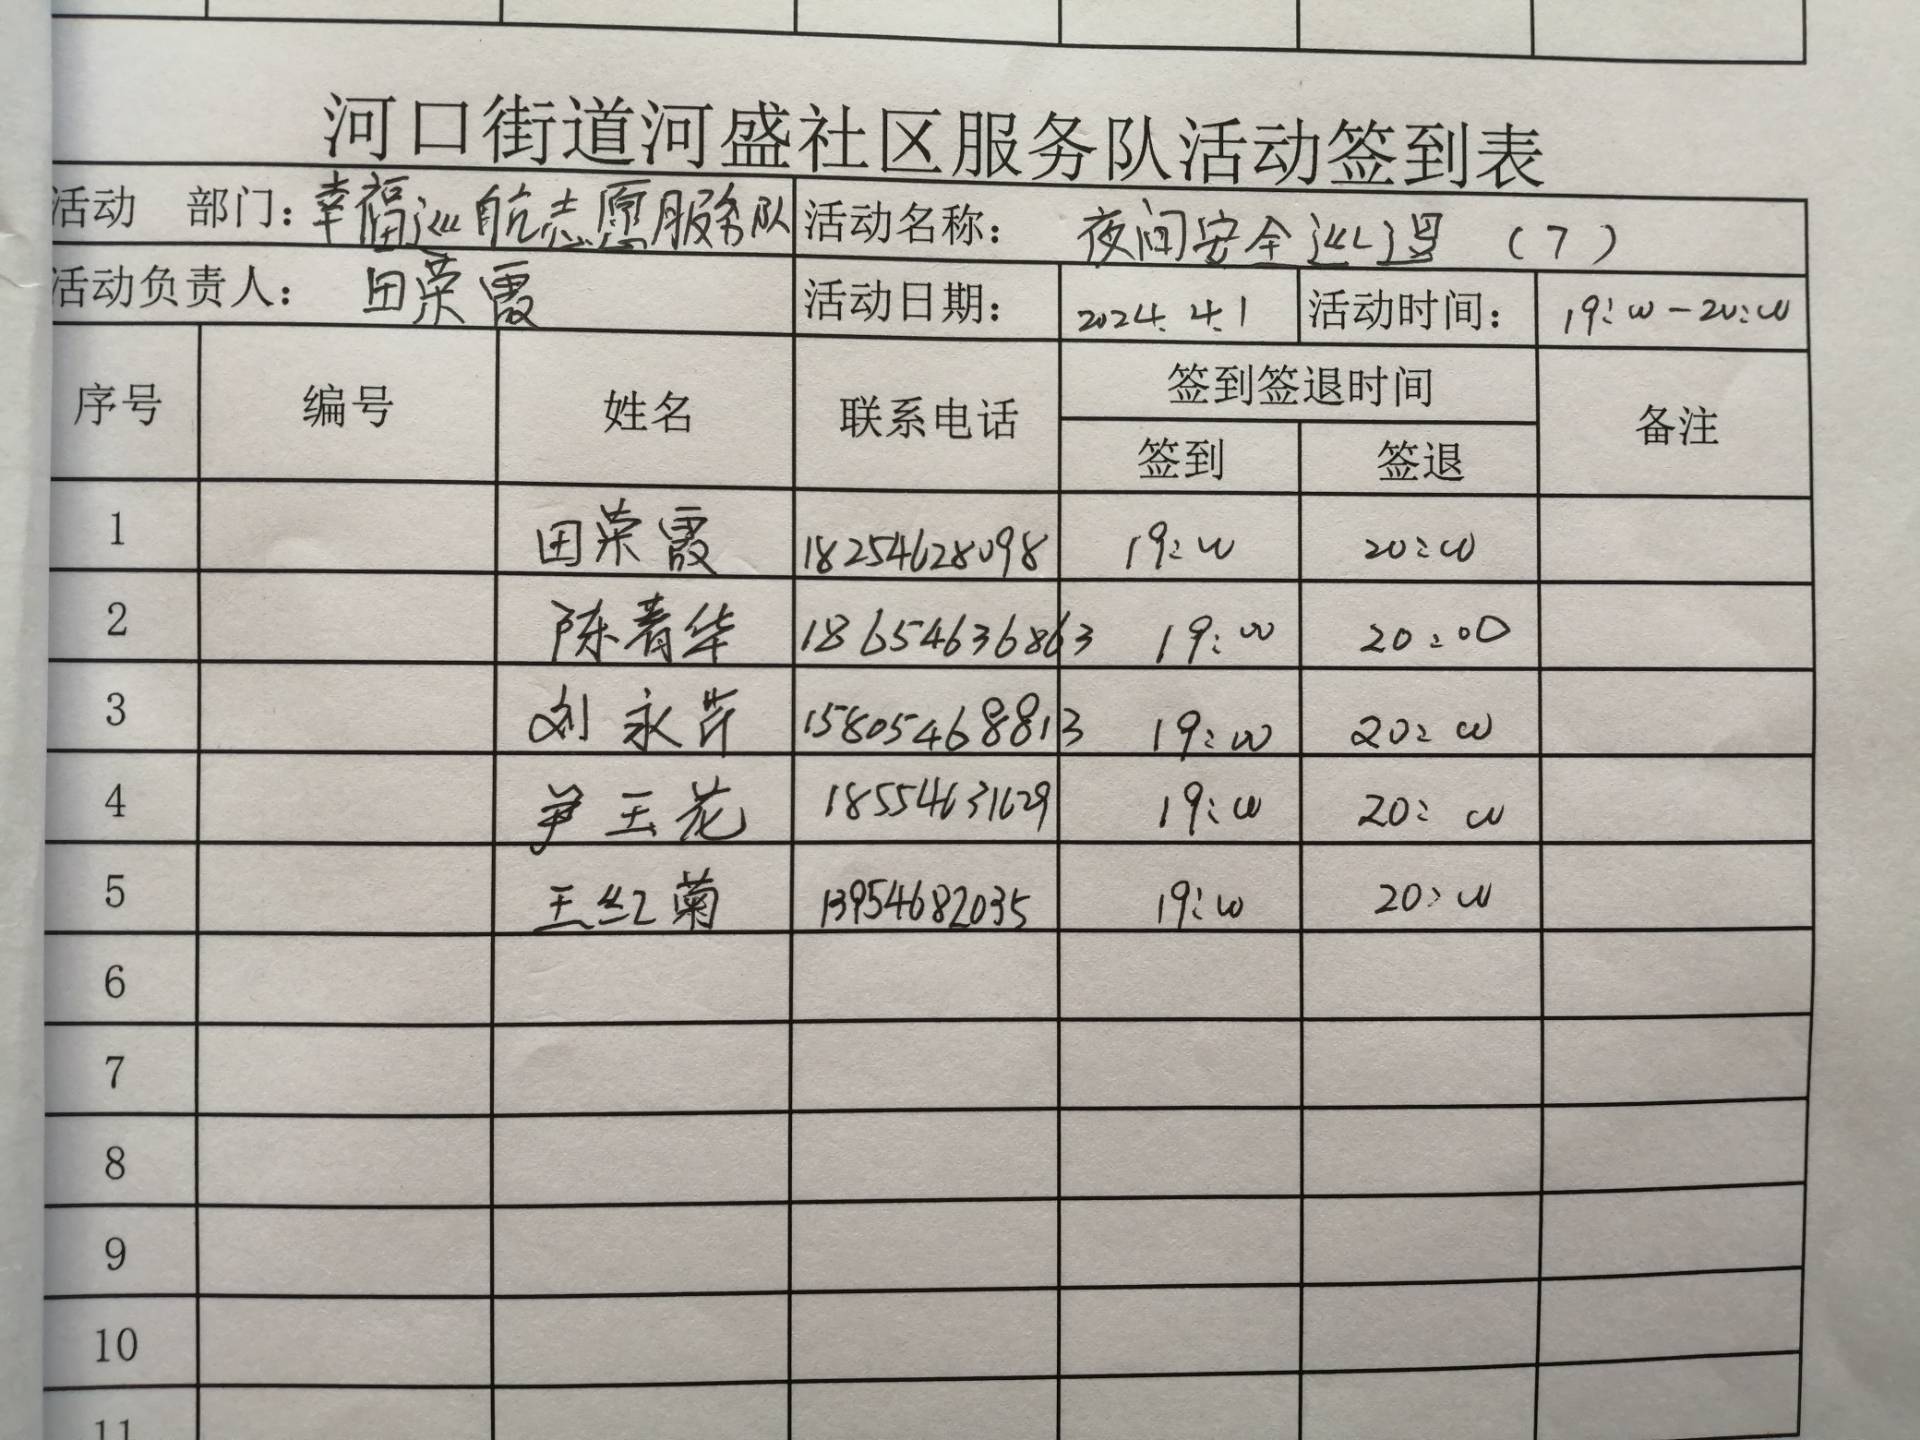 河口街道河盛社区服务队活动签到表
活动 部门：幸福巡航志愿服务队 活动名称： 夜间安全巡逻（7）
活动负责人： 田荣霞 活动日期： 2024.4.1 活动时间： 19:00-20:00
序号 编号 姓名 联系电话 签到签退时间 备注
签到 签退
1 田荣霞 18254628098 19:00 20:00
2 陈青华 18654636863 19:00 20:00
3 刘永芹 15805468813 19:00 20:00
4 尹玉花 18554631629 19:00 20:00
5 王红菊 13954682035 19:00 20:00
6
7
8
9
10
11